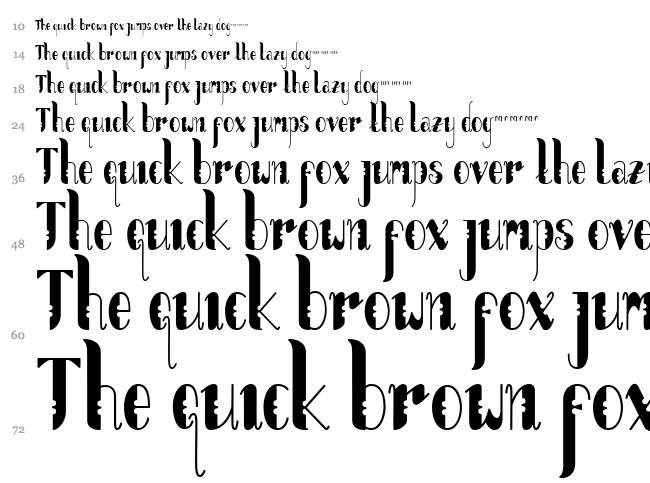 10 The quick brown fox jumps over the lazy dog
14 The quick brown fox jumps over the lazy dog
18 The quick brown fox jumps over the lazy dog
24 The quick brown fox jumps over the lazy dog
36 The quick brown fox jumps over the lazy
48 The quick brown fox jumps ove
60 The quick brown fox jum
72 The quick brown fox